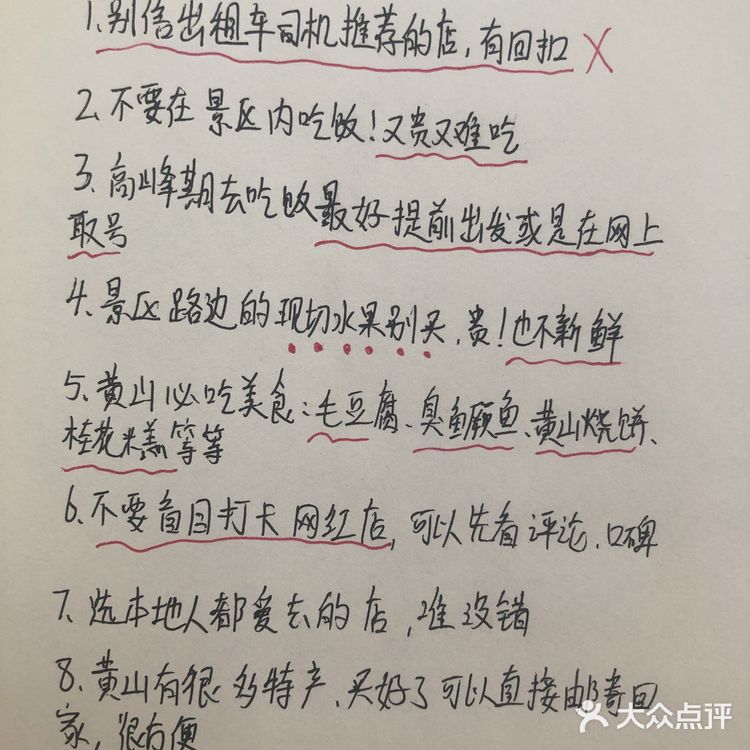 1、别信出租车司机推荐的店，有回扣 X
2、不要在景区内吃饭！又贵又难吃
3、高峰期去吃饭最好提前出发或是在网上
取号
4、景区路边的现切水果别买，贵！也不新鲜
5、黄山必吃美食：毛豆腐、臭鳜鱼、黄山烧饼、
桂花米糕等等
6、不要盲目打卡网红店，可以先看评论、口碑
7、选本地人都爱去的店，准没错
8、黄山有很多特产、买好了可以直接邮寄回
家，很方便
大众点评